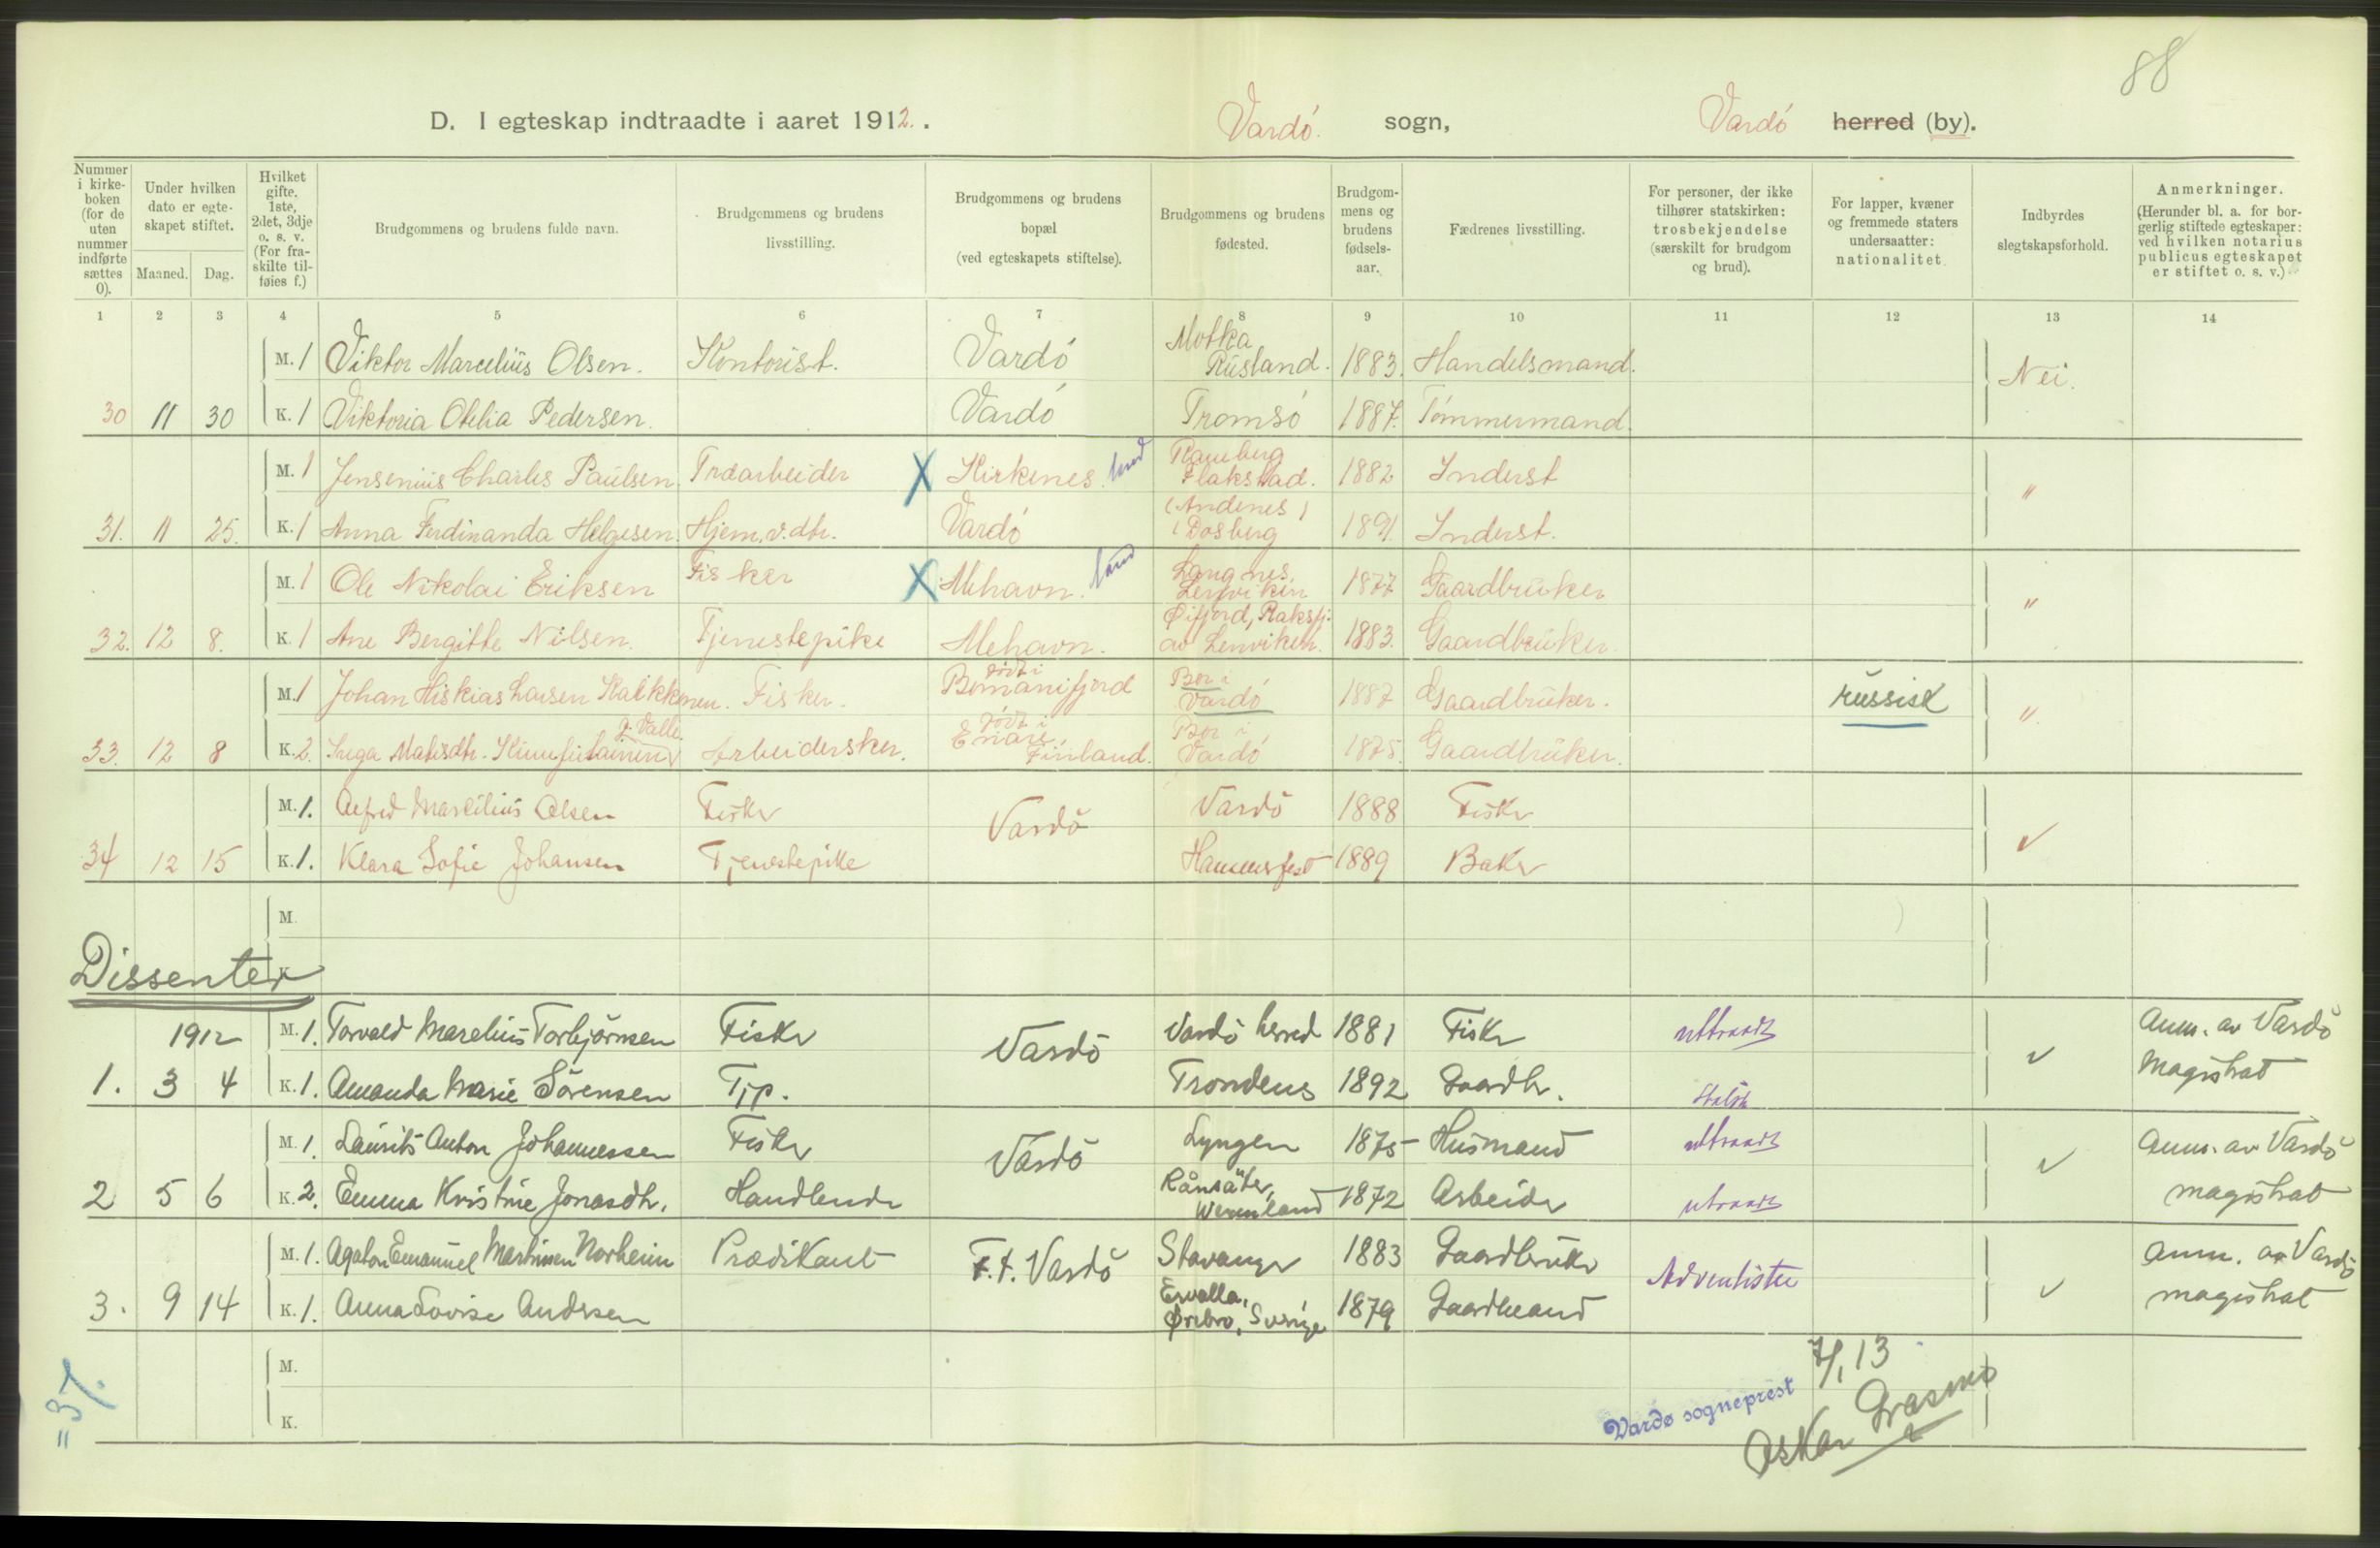 88
D. I egteskap indtraadte i aaret 1912. Vardö sogn, Vardö herred (by).
Nummer i kirkeboken (for de uten nummer indførte sættes 0).
Under hvilken dato er egteskapet stiftet.
Maaned. Dag.
Hvilket gifte. 1ste, 2det, 3dje o. s. v. (For fraskilte tilføies f.)
Brudgommens og brudens fulde navn.
Brudgommens og brudens livsstilling.
Brudgommens og brudens bopæl (ved egteskapets stiftelse).
Brudgommens og brudens fødested.
Brudgommens og brudens fødselsaar.
Fædrenes livsstilling.
For personer, der ikke tilhører statskirken: trosbekjendelse (særskilt for brudgom og brud).
For lapper, kvæner og fremmede staters undersaatter: nationalitet
Indbyrdes slegtskapsforhold.
Anmerkninger. (Herunder bl. a. for borgerlig stiftede egteskaper: ved hvilken notarius publicus egteskapet er stiftet o. s. v.)
1 2 3 4 5 6 7 8 9 10 11 12 13 14
M. 1 Viktor Marcelius Olsen. Kontorist. Vardö Motka Rusland. 1883. Handelsmand. Nei.
30 11 30 K. 1 Viktoria Otelia Pedersen. Vardö Tromsö 1887. Tömmermand.
M. 1 Jensenius Charles Paulsen. Træarbeider X Kirkenes. Ramberg Flakstad. 1882 Inderst "
31. 11 25. K. 1 Anna Ferdinanda Helgesen. Hjem. v. dtr. Vardö (Andenes) (Dosberg 1891. Inderst.
M. 1 Ole Nikolai Eriksen Fisker X Mehavn. Langnes, Lenviken 1877 Gaardbruker "
32. 12 8. K. 1 Ane Bergitte Nilsen. Tjenestepike Mehavn. Øifjord, Raksfj. av Lenviken. 1883. Gaardbruker.
M. 1 Johan Hiskias Larsen Kalkkinen. Fisker. född i Bomanifjord Bor i Vardö 1887 Gaardbruker. russisk "
33. 12 8 K. 2. Matisdtr. g. Valle Arbeidersker. född i Enare, Finland. Bor i Vardö 1875. Gaardbruker.
M. 1. Alfred Marcilius Olsen Fisker Vardö Vardö 1888 Fisker
34 12 15 K. 1. Klara Sofie Johansen Tjenestepike Hammerfest 1889 Baker
M.
Dissenter K.
1912 M. 1. Torvald Marelius Torbjörnsen Fisker Vardö Vardö herred 1881 Fisker uttraadt Anm. av Vardö
1. 3 4 K. 1. Amanda Marie Sörensen Tjp. Trondenes 1892 Gaardbr. Statsk Magistrat
M. 1. Laurits Anton Johannessen Fisker Vardö Lyngen 1875 Husmand uttraadt Anm. av Vardö
2 5 6 K. 2. Emma Kristine Jonasdtr. Handlende Rånsäter, Wermland 1872 Arbeider utraadt magistrat
M. 1. Agaton Emanuel Martinsen Norheim Prædikant F.t. Vardö Stavanger 1883 Gaardbruker Adventister Anm. av Vardö
3. 9 14 K. 1. Anna Lovise Andersen Ervalla, Ørebro, Sverige 1879 Gaardmand magistrat
M.
K.
= 37.
Vardø sogneprest 7/1 13
Oskar Grasmo